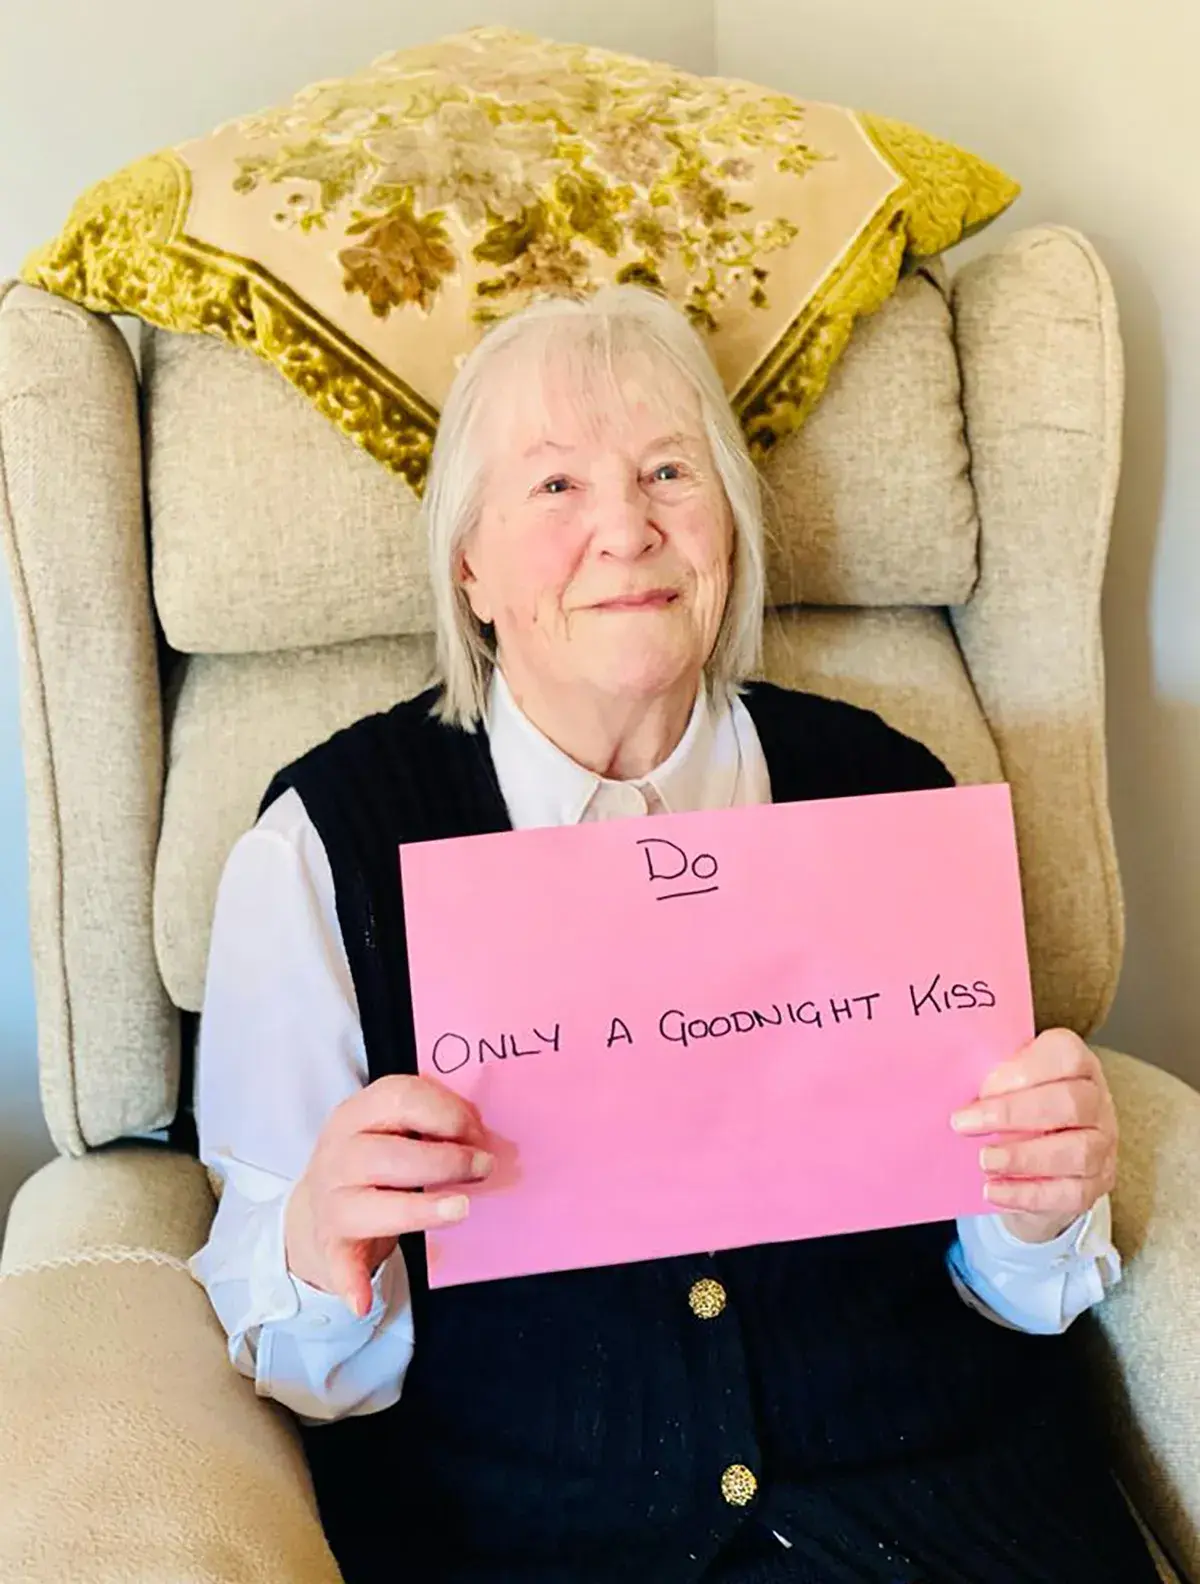 Do
ONLY A GOODNIGHT KISS